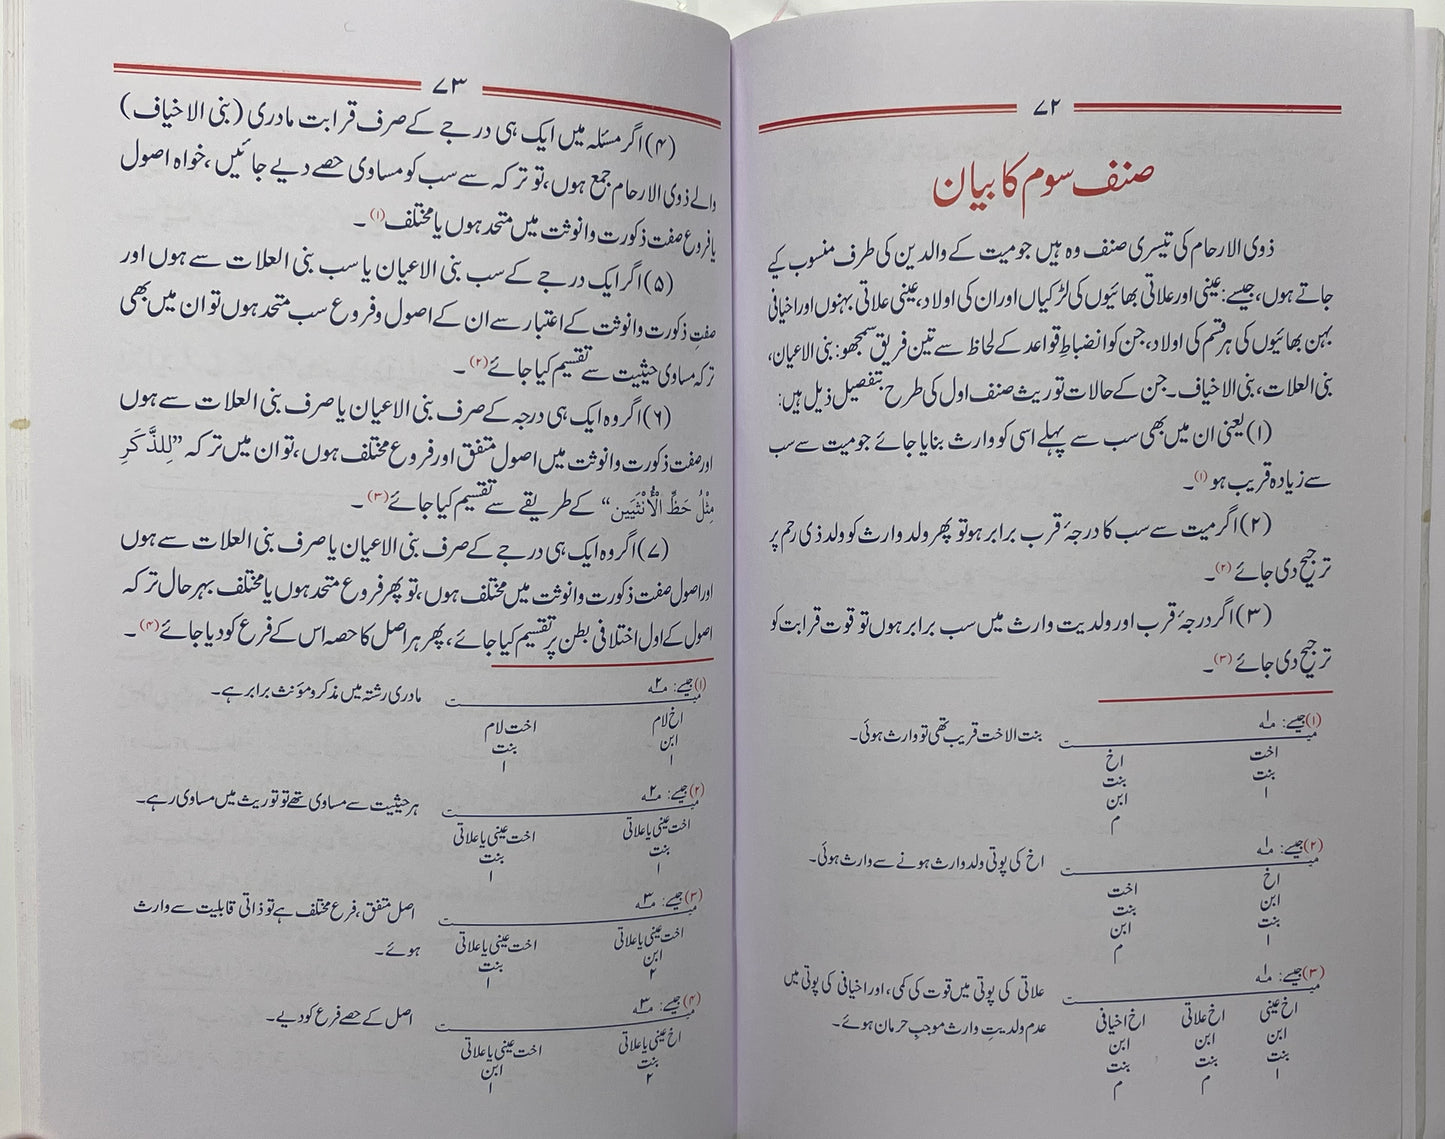 ۷۲
صنف سوم کا بیان
ذوی الارحام کی تیسری صنف وہ ہیں جو میت کے والدین کی طرف منسوب کیے
جاتے ہوں، جیسے: عینی اور علاتی بھائیوں کی لڑکیاں اور ان کی اولاد، عینی علاتی بہنوں اور اخیافی
بہن بھائیوں کی ہر قسم کی اولاد، جن کو انضباطِ قواعد کے لحاظ سے تین فریق سمجھو: بنی الاعیان،
بنی العلات، بنی الاخیاف۔ جن کے حالات توریث صنف اول کی طرح بتفصیل ذیل ہیں:
(۱) یعنی ان میں بھی سب سے پہلے اسی کو وارث بنایا جائے جو میت سے سب
سے زیادہ قریب ہو (۱)۔
(۲) اگر میت سے سب کا درجۂ قرب برابر ہو تو پھر ولد وارث کو ولد ذی رحم پر
ترجیح دی جائے (۲)۔
(۳) اگر درجۂ قرب اور ولدیت وارث میں سب برابر ہوں تو قوت قرابت کو
ترجیح دی جائے (۳)۔
(۱) جیسے: مسئلہ ۱ بنت الاخت قریب تھی تو وارث ہوئی۔
میـــت
اخت اخ
بنت بنت
۱ ابن
م
(۲) جیسے: مسئلہ ۱ اخ کی پوتی ولد وارث ہونے سے وارث ہوئی۔
میـــت
اخ اخت
ابن بنت
بنت ابن
۱ م
(۳) جیسے: مسئلہ ۱ علاتی کی پوتی میں قوت کی کمی، اور اخیافی کی پوتی میں
میـــت
اخ عینی اخ علاتی اخ اخیافی عدم ولدیتِ وارث موجبِ حرمان ہوئے۔
ابن ابن ابن
بنت بنت بنت
۱ م م
۷۳
(۴) اگر مسئلہ میں ایک ہی درجے کے صرف قرابت مادری (بنی الاخیاف)
والے ذوی الارحام جمع ہوں، تو ترکہ سے سب کو مساوی حصے دیے جائیں، خواہ اصول
یا فروع صفت ذکورت وانوثت میں متحد ہوں یا مختلف (۱)۔
(۵) اگر ایک درجے کے سب بنی الاعیان یا سب بنی العلات سے ہوں اور
صفتِ ذکورت وانوثت کے اعتبار سے ان کے اصول وفروع سب متحد ہوں تو ان میں بھی
ترکہ مساوی حیثیت سے تقسیم کیا جائے (۲)۔
(۶) اگر وہ ایک ہی درجہ کے صرف بنی الاعیان یا صرف بنی العلات سے ہوں
اور صفت ذکورت وانوثت میں اصول متفق اور فروع مختلف ہوں، تو ان میں ترکہ ”لِلذَّكَرِ
مِثْلُ حَظِّ الْأُنْثَيَيْنِ“ کے طریقے سے تقسیم کیا جائے (۳)۔
(۷) اگر وہ ایک ہی درجے کے صرف بنی الاعیان یا صرف بنی العلات سے ہوں
اور اصول صفت ذکورت وانوثت میں مختلف ہوں، تو پھر فروع متحد ہوں یا مختلف بہر حال ترکہ
اصول کے اول اختلافی بطن پر تقسیم کیا جائے، پھر ہر اصل کا حصہ اس کے فرع کو دیا جائے (۴)۔
(۱) جیسے: مسئلہ ۲ مادری رشتہ میں مذکر ومؤنث برابر ہے۔
میـــت
اخ لام اخت لام
ابن بنت
۱ ۱
(۲) جیسے: مسئلہ ۲ ہر حیثیت سے مساوی تھے تو توریث میں مساوی رہے۔
میـــت
اخت عینی یا علاتی اخت عینی یا علاتی
بنت بنت
۱ ۱
(۳) جیسے: مسئلہ ۳ اصل متفق، فرع مختلف ہے تو ذاتی قابلیت سے وارث
میـــت
اخت عینی یا علاتی اخت عینی یا علاتی ہوئے۔
ابن بنت
۲ ۱
(۴) جیسے: مسئلہ ۳ اصل کے حصے فرع کو دیے۔
میـــت
اخ عینی یا علاتی اخت عینی یا علاتی
بنت ابن
۲ ۱